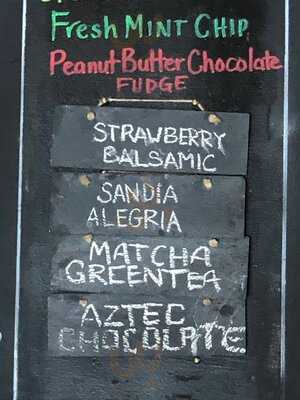 Fresh MINT CHIP
Peanut Butter Chocolate
FUDGE
STRAWBERRY
BALSAMIC
SANDIA
ALEGRIA
MATCHA
GREENTEA
AZTEC
CHOCOLATE